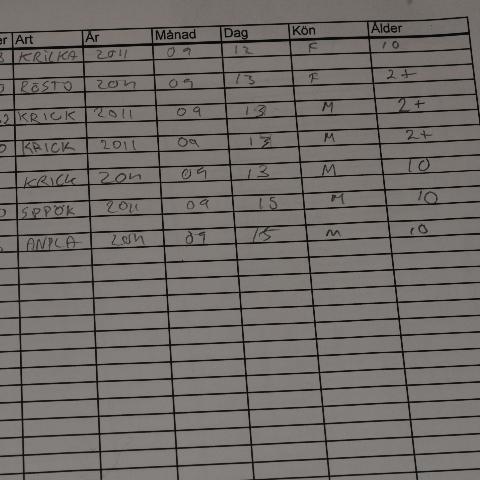 er Art År Månad Dag Kön Ålder
KRICKA 2011 09 12 F 10
ROSTO 2011 09 13 F 2+
2 KRICK 2011 09 13 M 2+
KRICK 2011 09 13 M 2+
KRICK 2011 09 13 M 10
SPPÖK 2011 09 15 M 10
ANPLA 2011 09 15 M 10